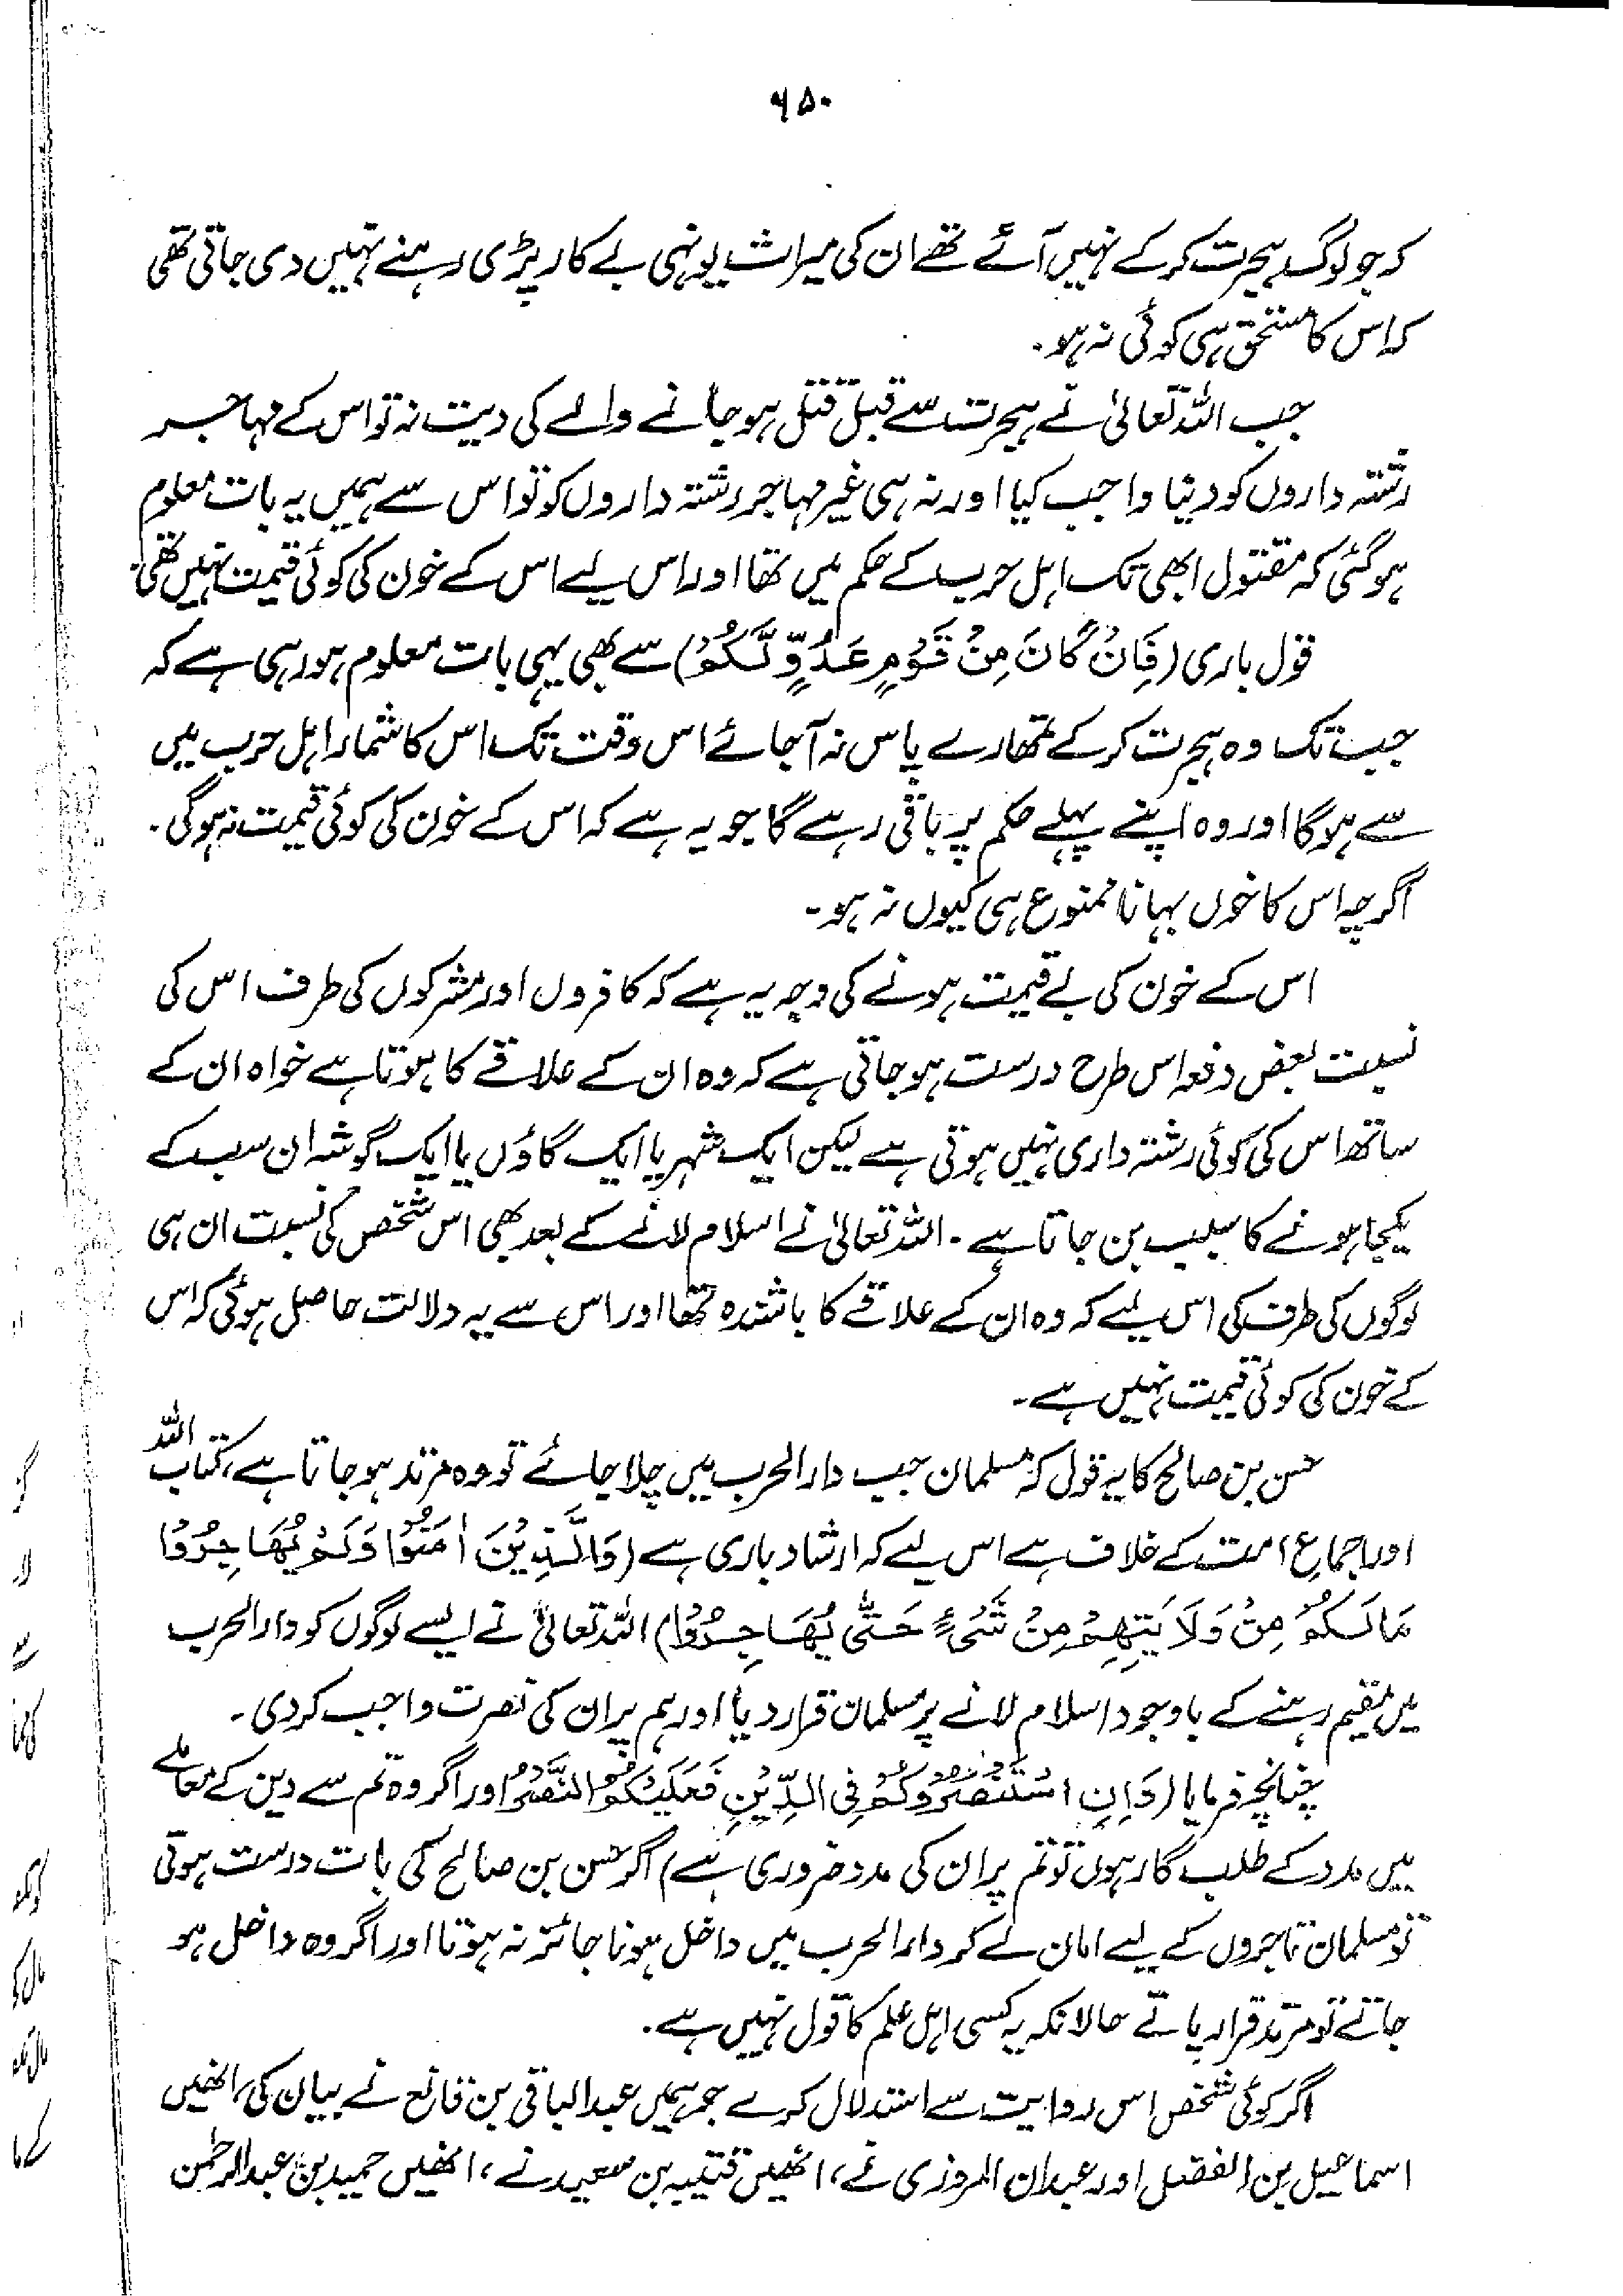 ۶۵۰
کہ جو لوگ ہجرت کر کے نہیں آئے تھے ان کی میراث یونہی بے کار پڑی رہنے نہیں دی جاتی تھی
کہ اس کا مستحق ہی کوئی نہ ہو۔
جب اللہ تعالیٰ نے ہجرت سے قبل قتل ہو جانے والے کی دیت نہ تو اس کے مہاجر
رشتہ داروں کو دینا واجب کیا اور نہ ہی غیر مہاجر رشتہ داروں کو تو اس سے ہمیں یہ بات معلوم
ہو گئی کہ مقتول ابھی تک اہل حرب کے حکم میں تھا اور اس لیے اس کے خون کی کوئی قیمت نہیں تھی۔
قول باری (فَاِنْ كَانَ مِنْ قَوْمٍ عَدُوٍّ لَّكُمْ) سے بھی یہی بات معلوم ہو رہی ہے کہ
جب تک وہ ہجرت کر کے تمھارے پاس نہ آ جائے اس وقت تک اس کا شمار اہل حرب میں
سے ہوگا اور وہ اپنے پہلے حکم پر باقی رہے گا جو یہ ہے کہ اس کے خون کی کوئی قیمت نہ ہوگی۔
اگرچہ اس کا خون بہانا ممنوع ہی کیوں نہ ہو۔
اس کے خون کی بے قیمت ہونے کی وجہ یہ ہے کہ کافروں اور مشرکوں کی طرف اس کی
نسبت بعض دفعہ اس طرح درست ہو جاتی ہے کہ وہ ان کے علاقے کا ہوتا ہے خواہ ان کے
ساتھ اس کی کوئی رشتہ داری نہیں ہوتی ہے لیکن ایک شہر یا ایک گاؤں یا ایک گوشہ ان سب کے
یکجا ہونے کا سبب بن جاتا ہے۔ اللہ تعالیٰ نے اسلام لانے کے بعد بھی اس شخص کی نسبت ان ہی
لوگوں کی طرف کی اس لیے کہ وہ ان کے علاقے کا باشندہ تھا اور اس سے یہ دلالت حاصل ہوئی کہ اس
کے خون کی کوئی قیمت نہیں ہے۔
حسن بن صالح کا یہ قول کہ مسلمان جب دارالحرب میں چلا جائے تو وہ مرتد ہو جاتا ہے، کتاب اللہ
اور اجماع امت کے خلاف ہے اس لیے کہ ارشاد باری ہے (وَالَّذِيْنَ اٰمَنُوْا وَلَمْ يُهَاجِرُوْا
مَا لَكُمْ مِنْ وَلَايَتِهِمْ مِنْ شَىْءٍ حَتّٰى يُهَاجِرُوْا) اللہ تعالیٰ نے ایسے لوگوں کو دارالحرب
میں مقیم رہنے کے باوجود اسلام لانے پر مسلمان قرار دیا اور ہم پر ان کی نصرت واجب کر دی۔
چنانچہ فرمایا (وَاِنِ اسْتَنْصَرُوْكُمْ فِى الدِّيْنِ فَعَلَيْكُمُ النَّصْرُ اور اگر وہ تم سے دین کے معاملے
میں مدد کے طلب گار ہوں تو تم پر ان کی مدد ضروری ہے) اگر حسن بن صالح کی بات درست ہوتی
تو مسلمان تاجروں کے لیے امان لے کر دارالحرب میں داخل ہونا جائز نہ ہوتا اور اگر وہ داخل ہو
جاتے تو مرتد قرار پاتے حالانکہ یہ کسی اہل علم کا قول نہیں ہے۔
اگر کوئی شخص اس روایت سے استدلال کرے جو ہمیں عبدالباقی بن قانع نے بیان کی، انھیں
اسماعیل بن الفضل اور عبدان المروزی نے، انھیں قتیبہ بن سعید نے، انھیں حمید بن عبدالرحمٰن